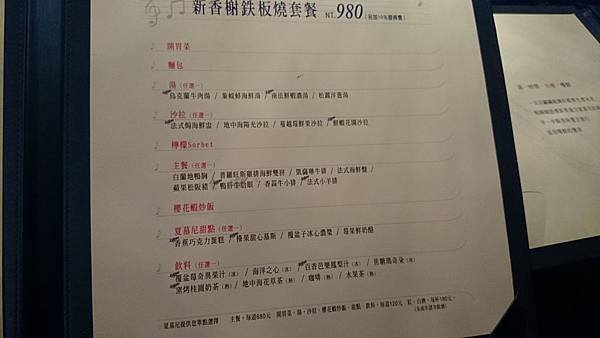 新香榭鉄板燒套餐 NT.980 (另加10%服務費)
開胃菜
麵包
湯(任選一)
烏克蘭牛肉湯 / 象蚬蚌海鮮湯 / 南法鮮蝦濃湯 / 松露洋蔥湯
沙拉(任選一)
法式焗海鮮盅 / 地中海陽光沙拉 / 蔓越莓鮮果沙拉 / 鮮蝦花園沙拉
檸檬Sorbet
主餐(任選一)
白蘭地鴨胸 / 普羅旺斯雞排海鮮雙拼 / 凱薩琳牛排 / 法式海鮮盤 /
蘋果松阪豬 / 鴨肝牛肋眼 / 香蒜牛小排 / 法式小羊排
櫻花蝦炒飯
夏慕尼甜點(任選一)
香蕉巧克力蛋糕 / 極果甜心慕斯 / 覆盆子冰心濃漿 / 莓果鮮奶酪
飲料(任選一)
覆盆莓奇異果汁(冰) / 海洋之心(冰) / 百香芭樂鳳梨汁(冰) / 焦糖瑪奇朵(冰)
窯烤桂圓奶茶(熱) / 地中海花草茶(熱) / 咖啡(熱) / 水果茶(熱)
夏慕尼提供您單點選擇 主餐,每道680元 開胃菜、湯、沙拉、櫻花蝦炒飯、甜點、飲料,每道120元 紅、白酒,每杯180元。
(未成年請勿飲酒)